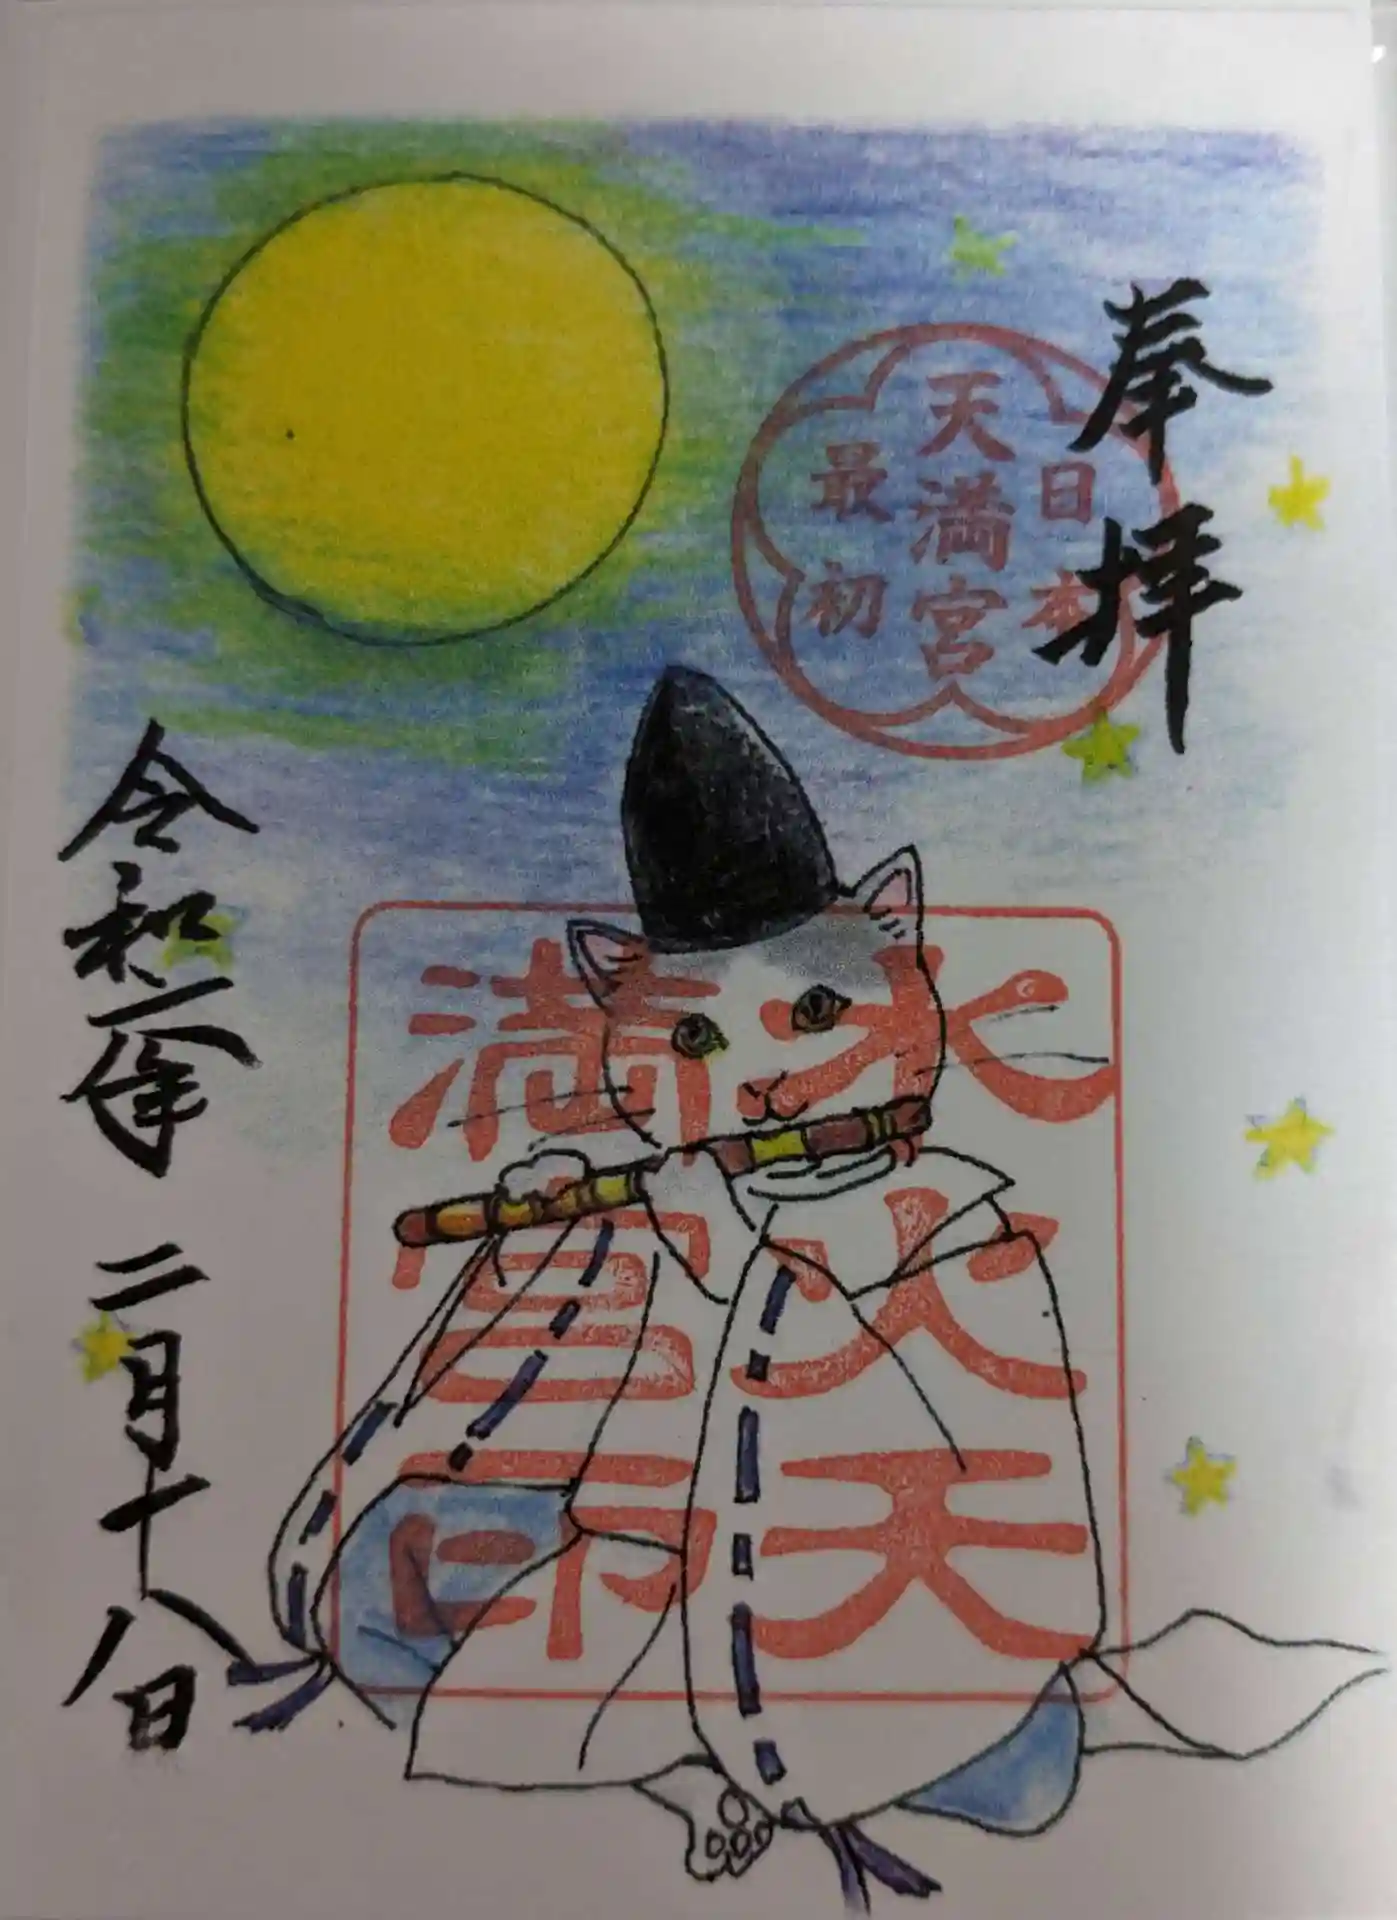 奉拝
日本
天満宮
最初
水火天
満宮印
令和二年 二月十八日